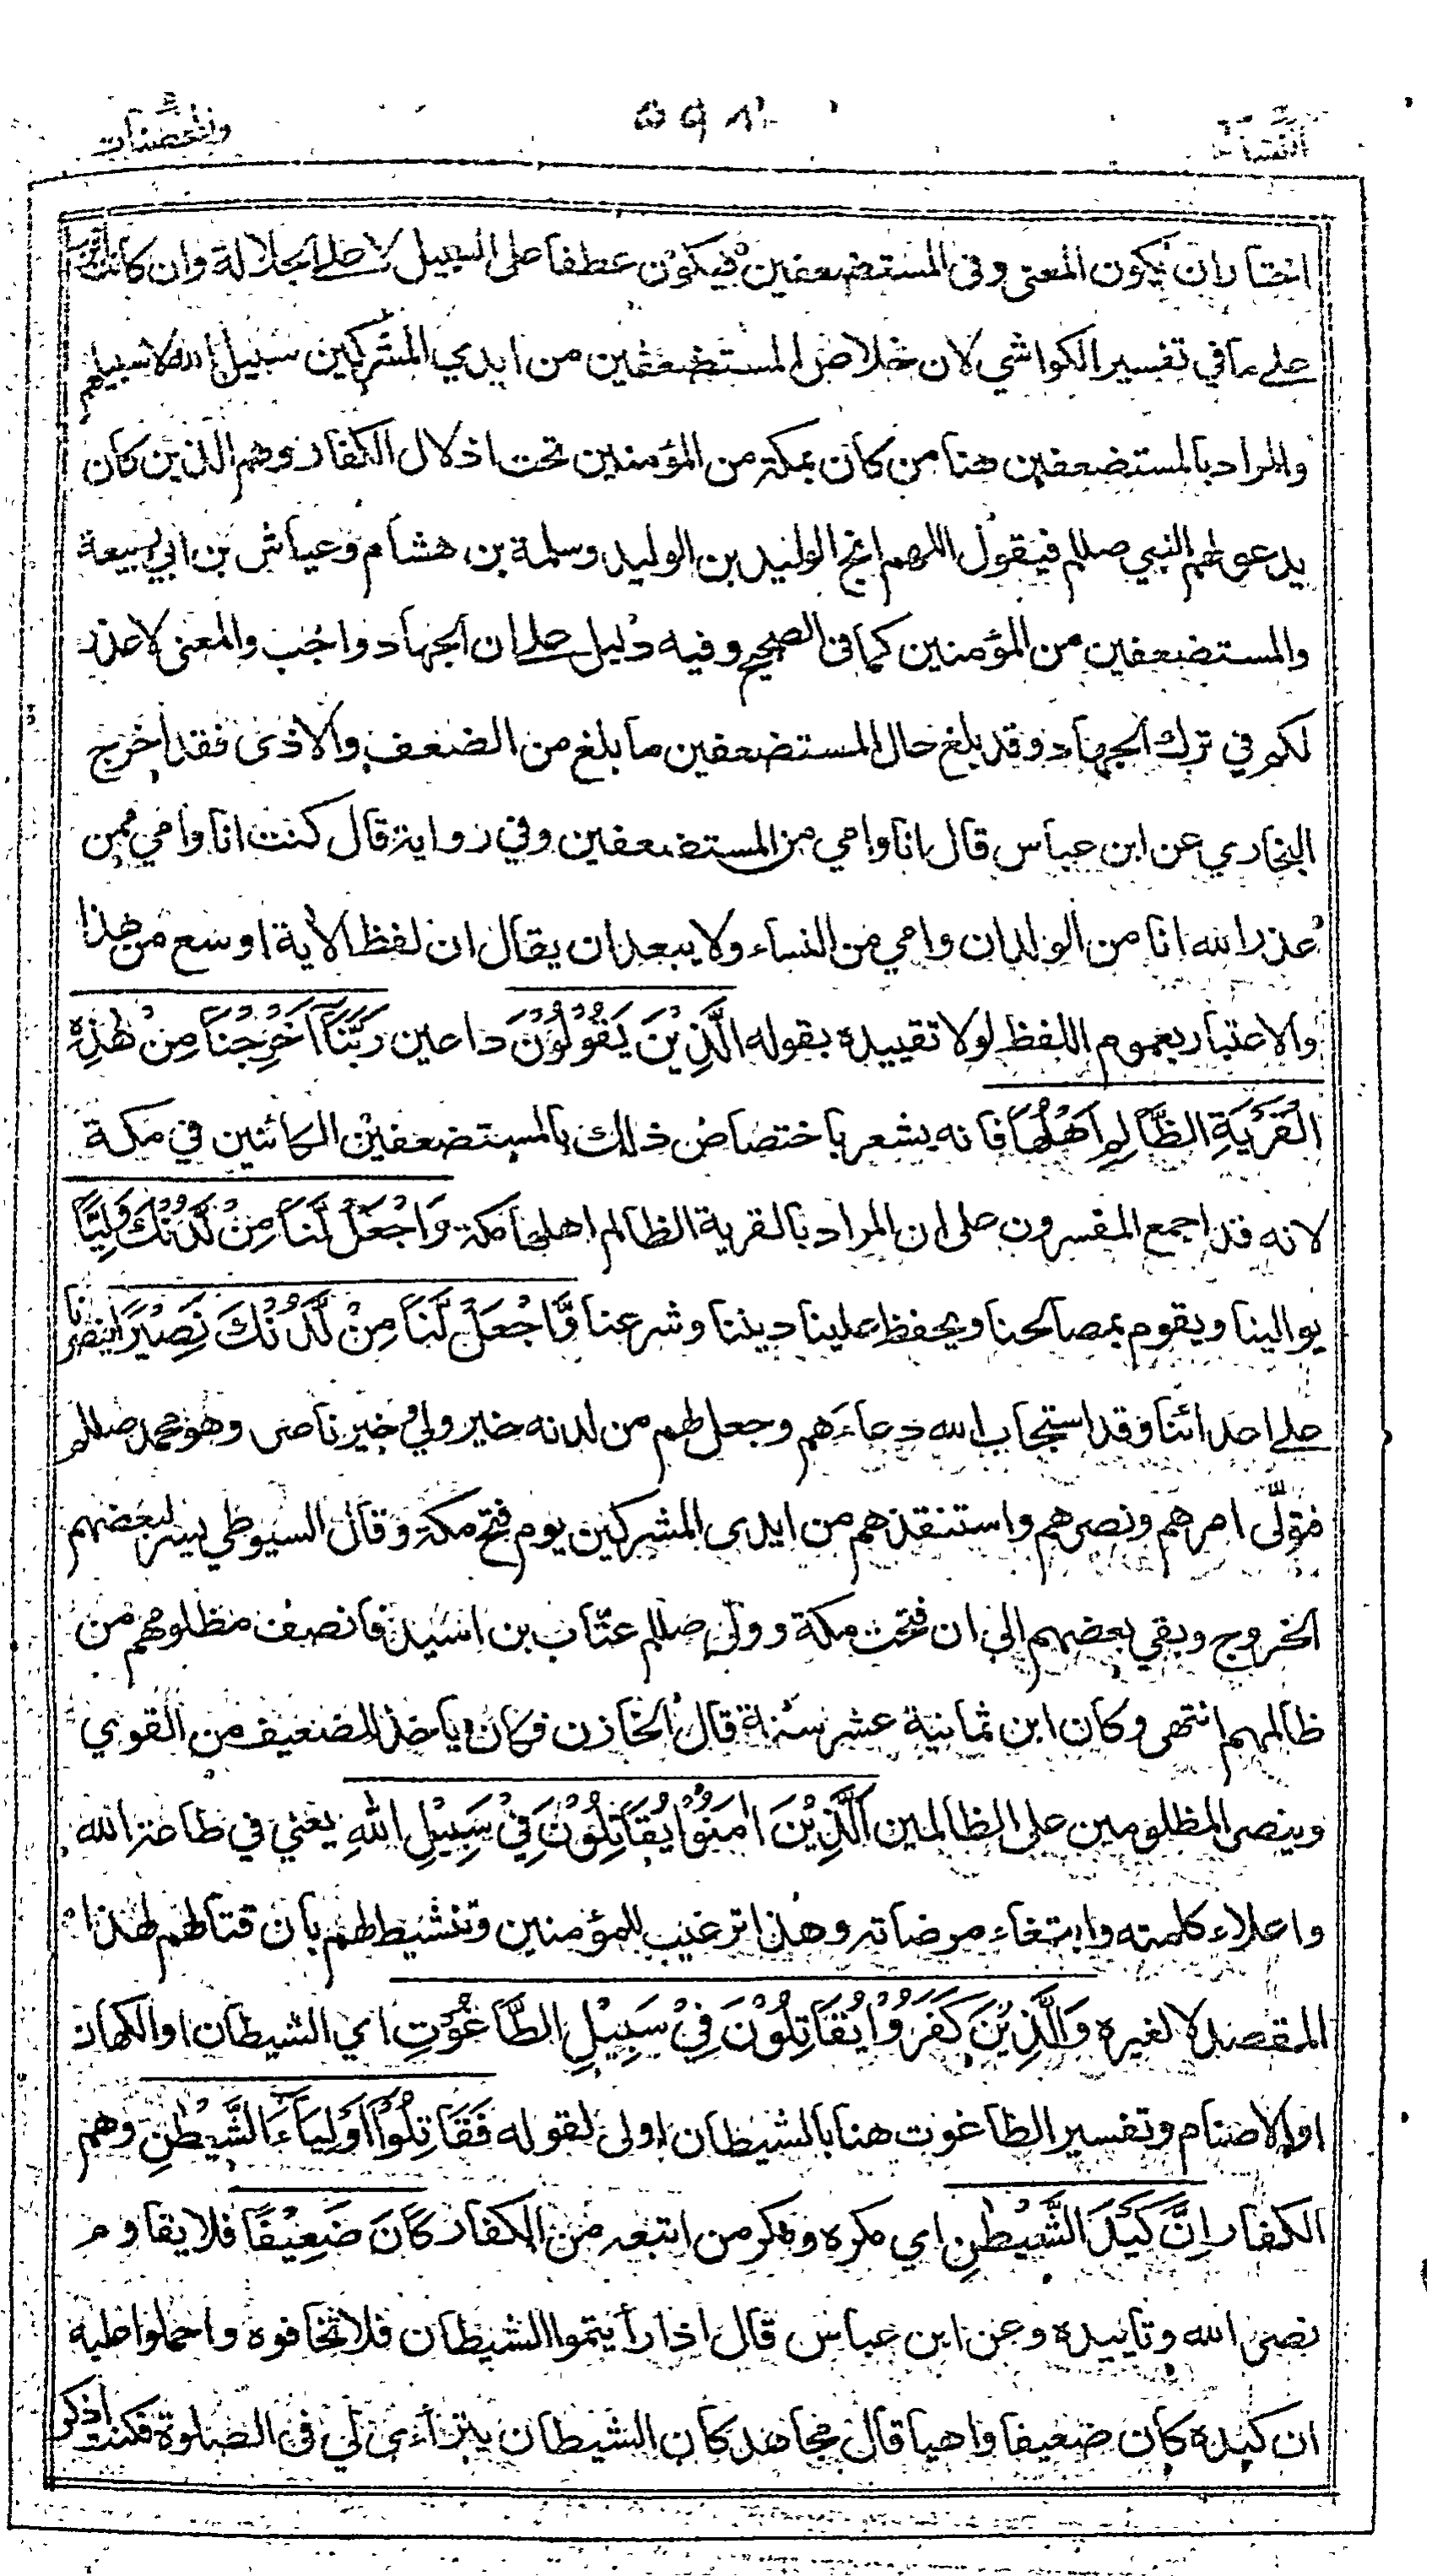 النساء
والمحصنات
اختار ان يكون المعنى وفى المستضعفين فيكون عطفا على السبيل لا على الجلالة وان كانت
على ما في تفسير الكواشي لان خلاص المستضعفين من ايدي المشركين سبيل الله لا سبيلهم
والمراد بالمستضعفين هنا من كان بمكة من المؤمنين تحت اذلال الكفار وهم الذين كان
يدعو لهم النبي صللم فيقول اللهم انج الوليد بن الوليد وسلمة بن هشام وعياش بن ابي ربيعة
والمستضعفين من المؤمنين كما فى الصحيح وفيه دليل على ان الجهاد واجب والمعنى لا عذر
لكم في ترك الجهاد وقد بلغ حال المستضعفين ما بلغ من الضعف والاذى فقد اخرج
البخاري عن ابن عباس قال انا وامي من المستضعفين وفي رواية قال كنت انا وامي ممن
عذر الله انا من الولدان وامي من النساء ولا يبعد ان يقال ان لفظ الاية اوسع من هذا
والاعتبار بعموم اللفظ لولا تقييده بقوله الَّذِيْنَ يَقُوْلُوْنَ داعين رَبَّنَا اَخْرِجْنَا مِنْ هٰذِهِ
الْقَرْيَةِ الظَّالِمِ اَهْلُهَا فانه يشعر باختصاص ذلك بالمستضعفين الكائنين في مكة
لانه قد اجمع المفسرون على ان المراد بالقرية الظالم اهلها مكة وَاجْعَلْ لَّنَا مِنْ لَّدُنْكَ وَلِيًّا
يوالينا ويقوم بمصالحنا ويحفظ علينا ديننا وشرعنا وَّاجْعَلْ لَّنَا مِنْ لَّدُنْكَ نَصِيْرًا ينصرنا
على اعدائنا وقد استجاب الله دعاءهم وجعل لهم من لدنه خير ولي وخير ناصر وهو محمد صللم
فتولّى امرهم ونصرهم واستنقذهم من ايدى المشركين يوم فتح مكة وقال السيوطي يسر لبعضهم
الخروج وبقي بعضهم الى ان فتحت مكة وولى صللم عتّاب بن اسيد فانصف مظلومهم من
ظالمهم انتهى وكان ابن ثمانية عشر سنة قال الخازن فكان ياخذ للضعيف من القوي
وينصر المظلومين على الظالمين اَلَّذِيْنَ اٰمَنُوْا يُقَاتِلُوْنَ فِيْ سَبِيْلِ اللهِ يعني في طاعة الله
واعلاء كلمته وابتغاء مرضاته وهذا ترغيب للمؤمنين وتنشيط لهم بان قتالهم لهذا
المقصد لا لغيره وَالَّذِيْنَ كَفَرُوْا يُقَاتِلُوْنَ فِيْ سَبِيْلِ الطَّاغُوْتِ اي الشيطان او الكهان
او الاصنام وتفسير الطاغوت هنا بالشيطان اولى لقوله فَقَاتِلُوْا اَوْلِيَاءَ الشَّيْطٰنِ وهم
الكفار اِنَّ كَيْدَ الشَّيْطٰنِ اي مكره ومكر من اتبعه من الكفار كَانَ ضَعِيْفًا فلا يقاوم
نصر الله وتاييده وعن ابن عباس قال اذا رأيتموا الشيطان فلا تخافوه واحملوا عليه
ان كيده كان ضعيفا واهيا قال مجاهد كان الشيطان يتراءى لي فى الصلوة فكنت اذكر